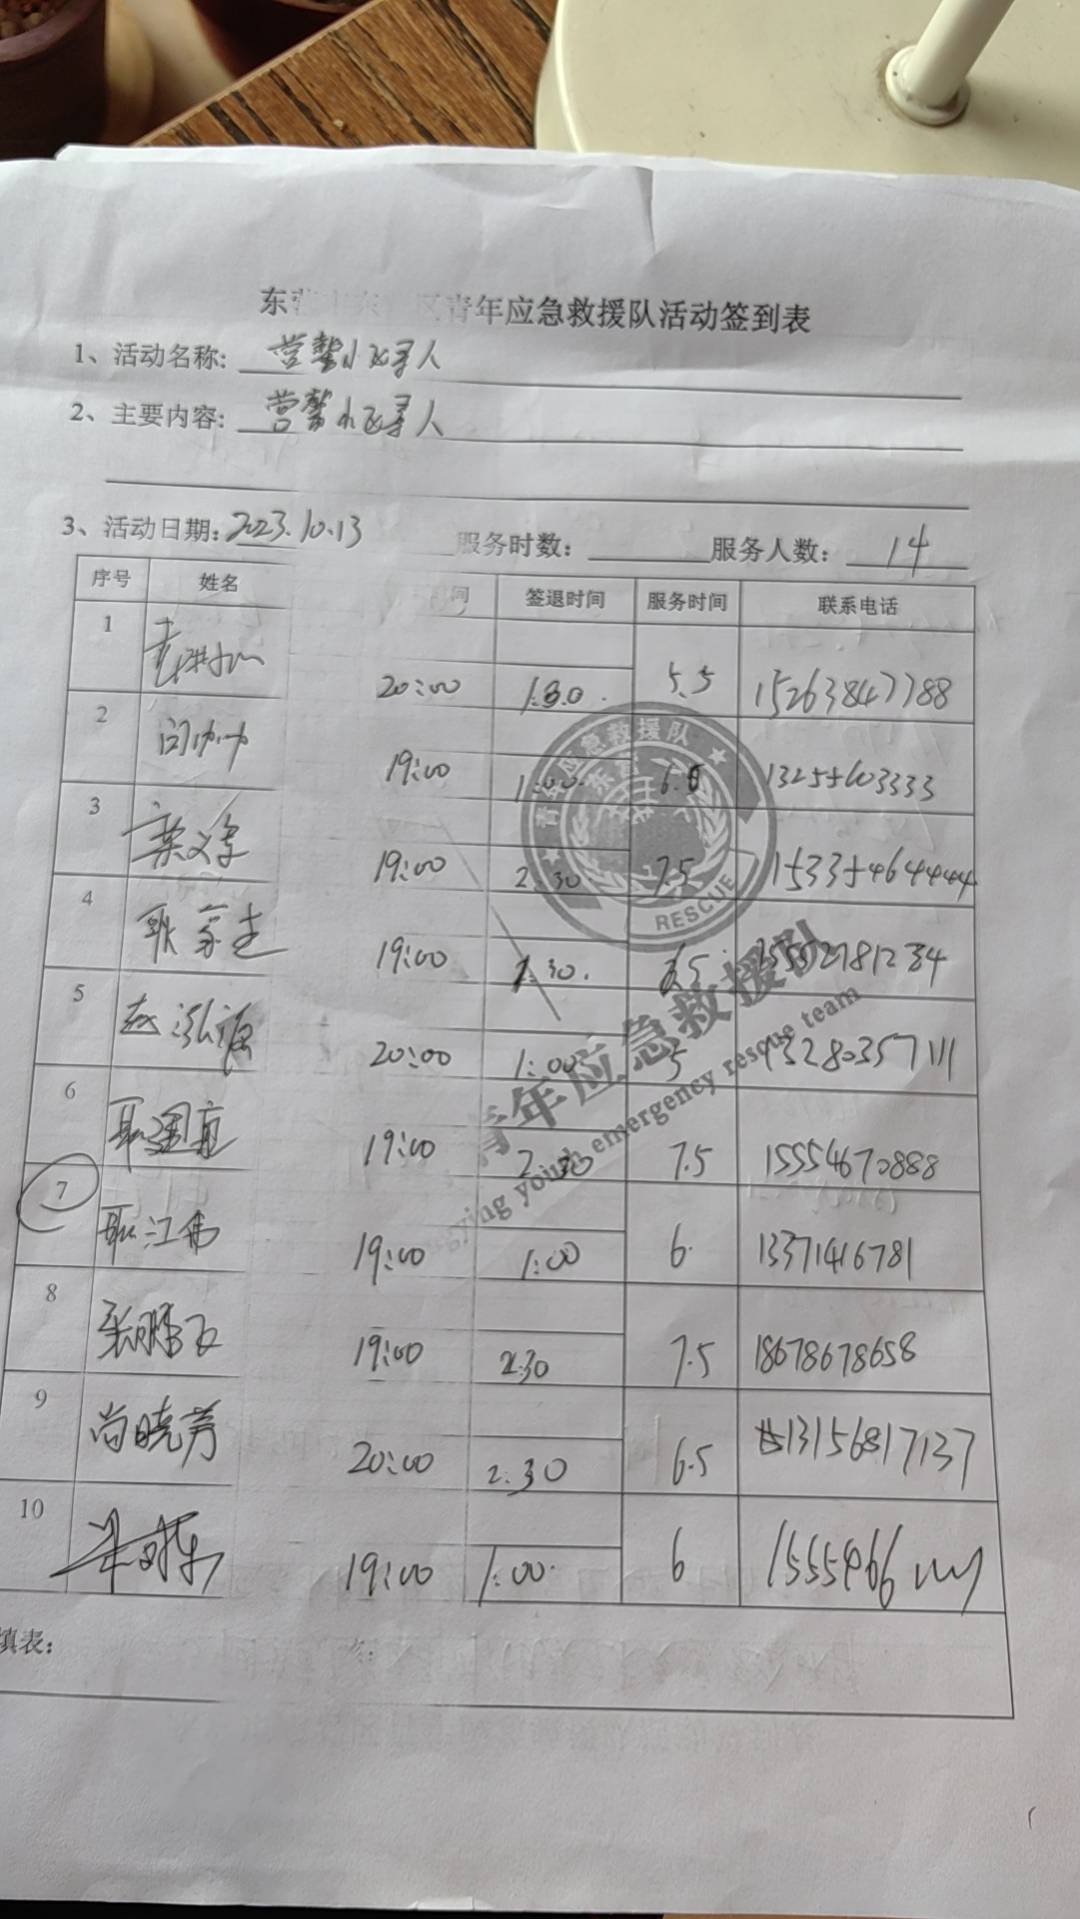 东 区青年应急救援队活动签到表
1、活动名称: 营馨小区寻人
2、主要内容: 营馨小区寻人
3、活动日期: 2023.10.13 服务时数: 服务人数: 14
序号 姓名 间 签退时间 服务时间 联系电话
1 20:00 1:30. 5.5 15263847788
2 19:00 1:00 6.0 13255603333
3 19:00 2:30 7.5 15335464444
4 耿 19:00 1:30. 6.5 15552781234
5 赵泓源 20:00 1:00 5 13280357111
6 19:00 2:30 7.5 15554670888
7 耿江伟 19:00 1:00 6 13371416781
8 张鹏飞 19:00 2:30 7.5 18678678658
9 尚晓芳 20:00 2:30 6.5 13156817137
10 19:00 1:00 6 1555466
填表:
青年应急救援队
RESCUE
青年应急救援队
ying youth emergency rescue team